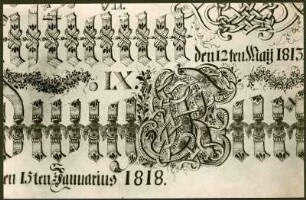 den 12ten Maÿ 1813.
IX.
en 13ten Januarius 1818.